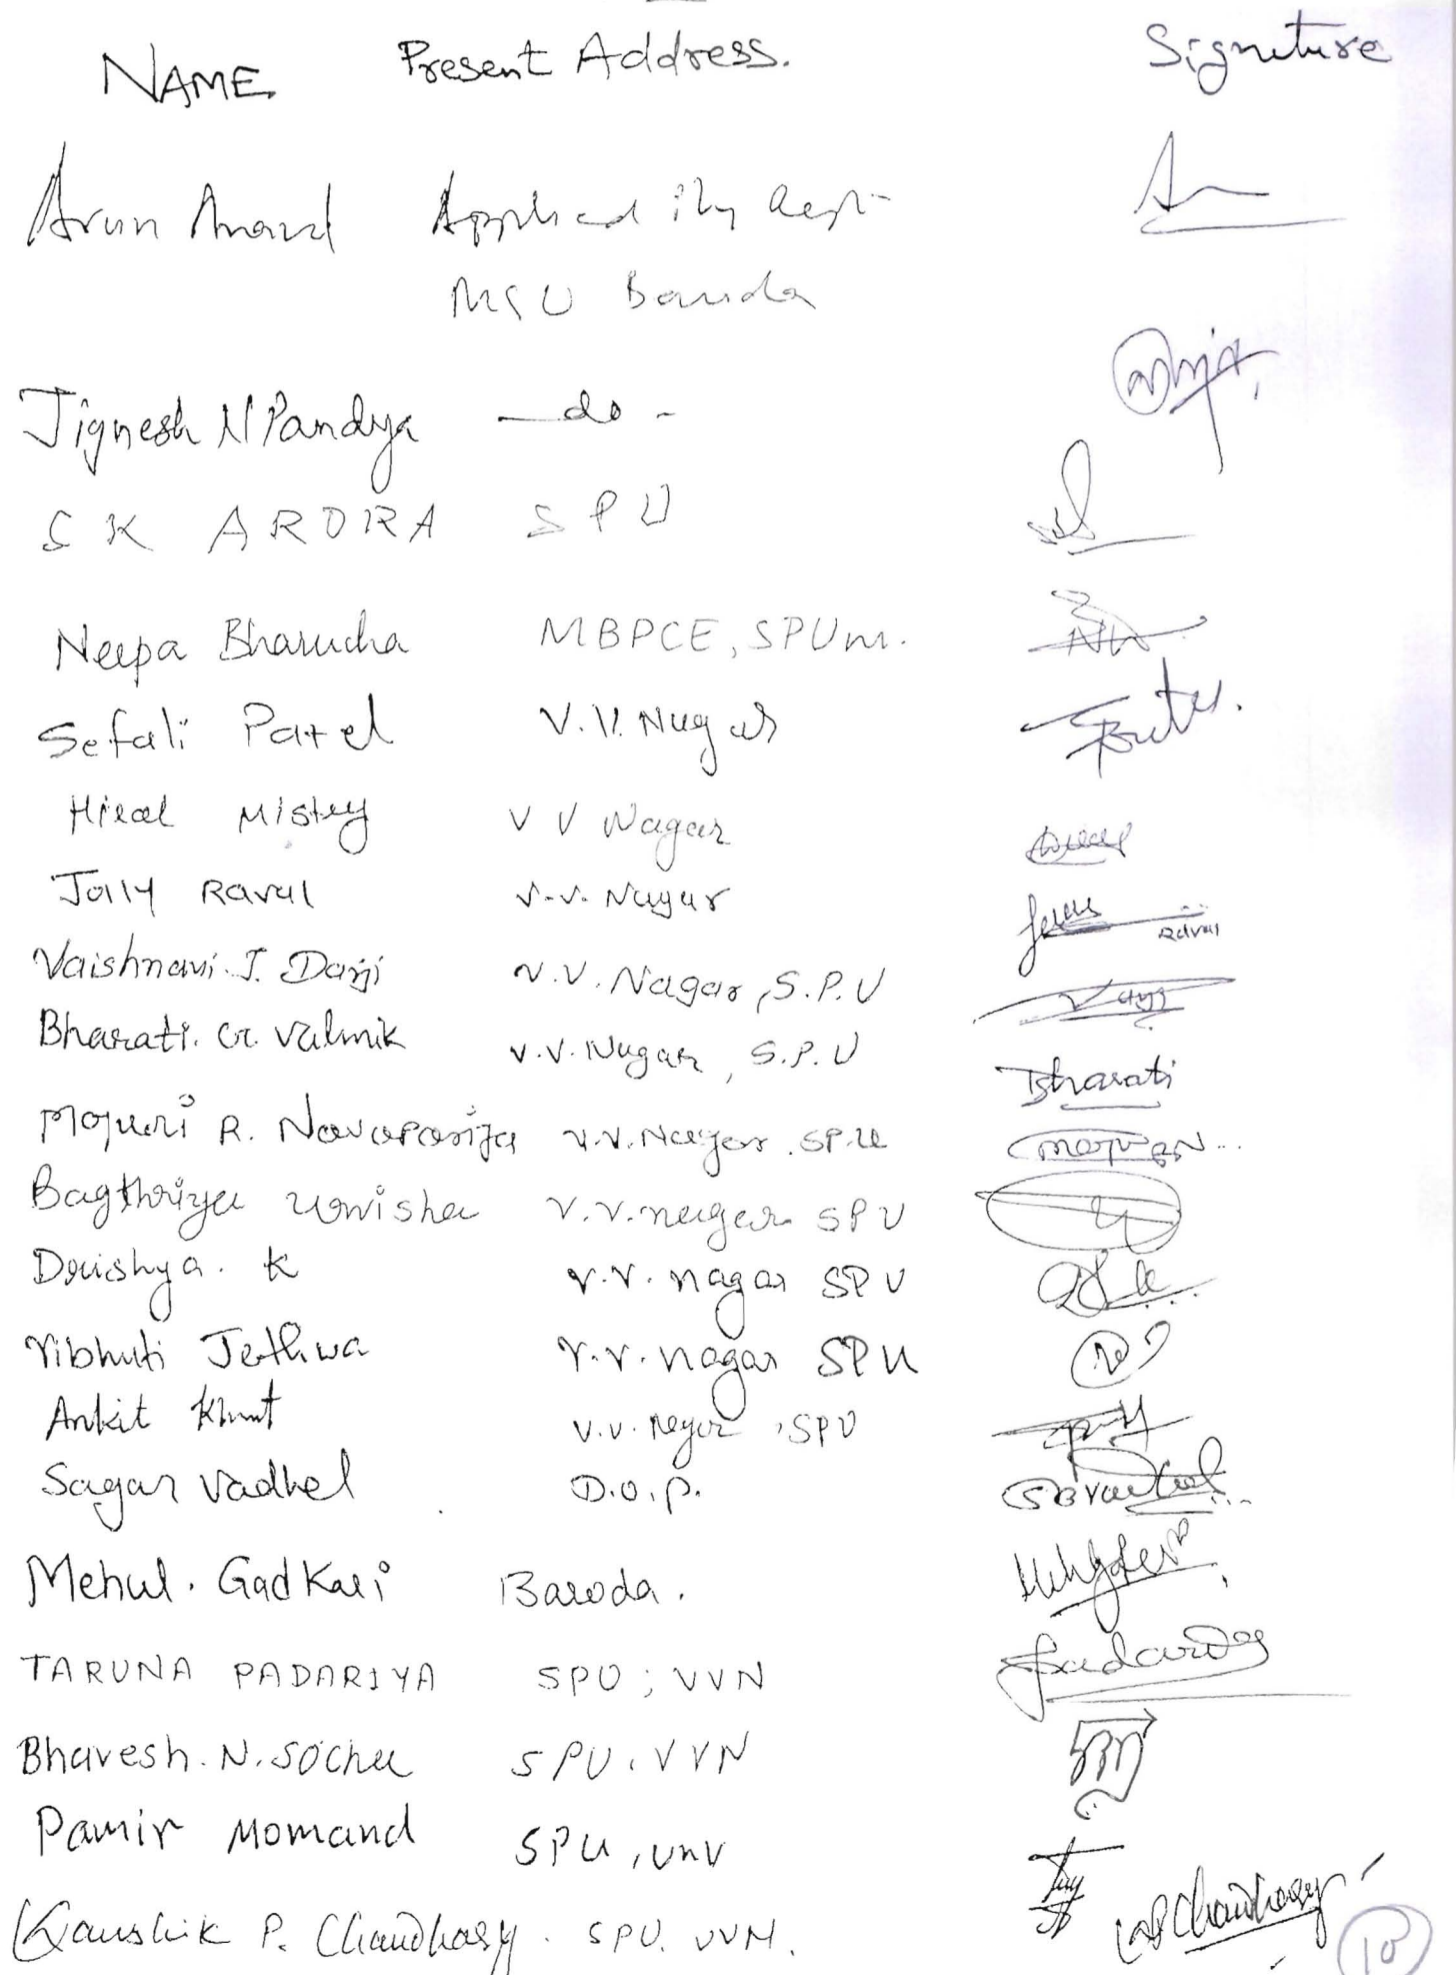 NAME Present Address. Signeture
Arun Anand Applied Dept
MSU Baroda
Jignesh N Pandya —do-
S K ARORA SPU
Neepa Bharucha MBPCE, SPUni.
Sefali Patel V.V. Nugar
Hiral Mistry V V Nagar
Jolly Raval V.V. Nugur Raval
Vaishnavi.J. Darji V.V. Nagar, S.P.U
Bharati. G. Valmik V.V. Nugar, S.P.U Bharati
Mayuri R. Navapariya V.V. Nagar. SP.U
Bagthriya Urvisha V.V. nagar SPU
Daishya. K V.V. nagar SPU
Vibhuti Jethwa V.V. nagar SPU
Ankit Khunt V.V. Nagar, SPU
Sagar Vadhel D.O.P.
Mehul. Gadkari Baroda.
TARUNA PADARIYA SPU; VVN
Bhavesh. N. Socha SPU, VVN
Pamir Momand SPU, VNV
Kaushik P. Chaudhary. SPU. VVN. Chaudhary
10